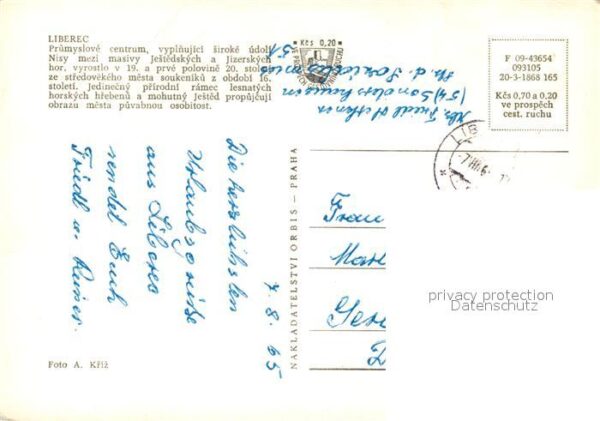 LIBEREC
Průmyslové centrum, vyplňující široké údolí
Nisy mezi masivy Ještědských a Jizerských
hor, vyrostlo v 19. a prvé polovině 20. století
ze středověkého města soukeníků z období 16.
století. Jedinečný přírodní rámec lesnatých
horských hřebenů a mohutný ještěd propůjčují
obrazu města půvabnou osobitost.
Kčs 0,20
F 09-43654
093105
20-3-1868 165
Kčs 0,70 a 0,20
ve prospěch
cest. ruchu
Abs. Friedl
(54) Sondershausen
51
LIB
Die herzlichsten
Urlaubsgrüße
aus Liberec
sendet Euch
Friedl u. Rainer.
7. 8. 65
NAKLADATELSTVÍ ORBIS — PRAHA
Frau
Mar
Ger
privacy protection
Datenschutz
Foto A. Kříž